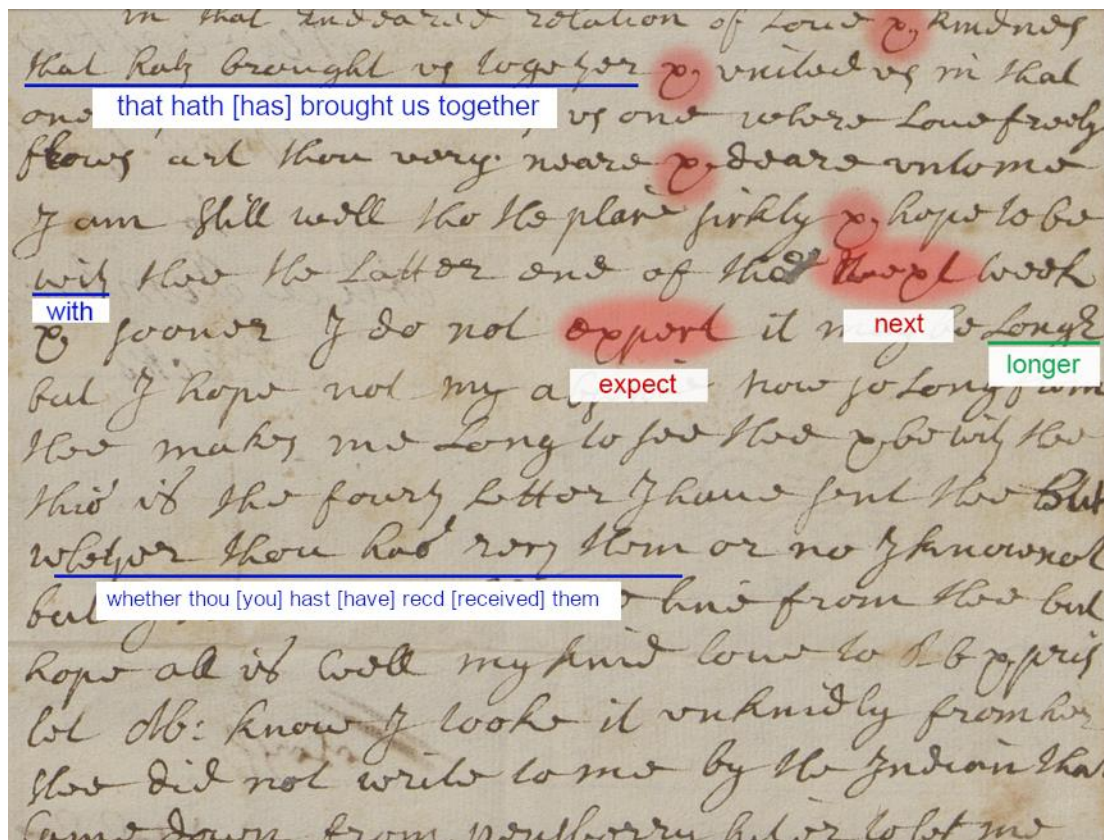 in that Endeared relation of Loue & kindnes
that hath brought vs together & vnited vs in that
that hath [has] brought us together
one vs one where Loue freely
flows art thou very neare & deare vnto me
I am still well tho the place sickly & hope to be
with thee the Latter end of the next week
with
next
& sooner I do not expect it be Longr
expect
longer
but I hope not my now so Long from
thee makes me Long to see thee & be with thee
this is the fourth Letter I haue sent thee But
whether thou hast recd them or no I know not
whether thou [you] hast [have] recd [received] them
but line from thee but
hope all is well my kind loue to &
let know I tooke it vnkindly from her
shee did not write to me by the Indian that
Came down from let me